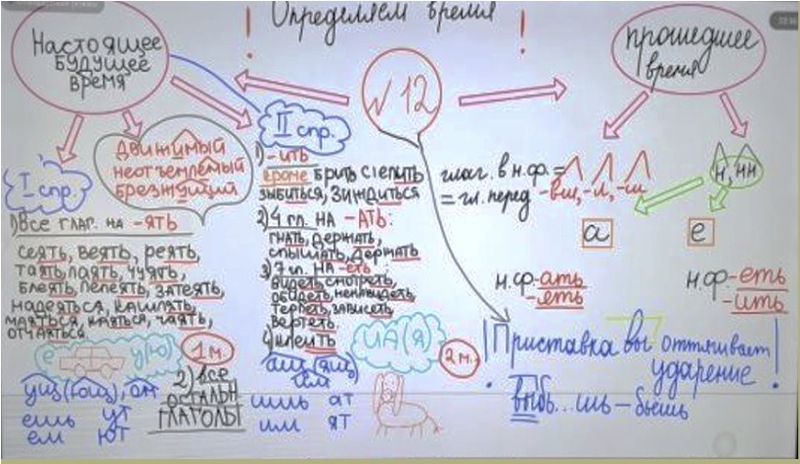 Определяем время
!
!
Настоящее
БУДУЩЕЕ
ВРЕМЯ
√12
прошедшее
время
ДВИЖИМЫЙ
НЕОТЪЕМЛЕМЫЙ
БРЕЗЖУЩИЙ
I спр.
1) Все ГЛАГ. НА -ЯТЬ
СЕЯТЬ, ВЕЯТЬ, РЕЯТЬ,
ТАЯТЬ, ЛАЯТЬ, ЧУЯТЬ,
БЛЕЯТЬ, ЛЕЛЕЯТЬ, ЗАТЕЯТЬ,
НАДЕЯТЬСЯ, КАШЛЯТЬ,
МАЯТЬСЯ, КАЯТЬСЯ, ЧАЯТЬ,
ОТЧАЯТЬСЯ.
е у(ю)
1 м.
ущ(ющ), ом
ешь ут
ем ют
2) все
ОСТАЛЬН
ГЛАГОЛЫ
II спр.
1) -ИТЬ
КРОМЕ БРИТЬ СТЕЛИТЬ
ЗЫБИТЬСЯ, ЗИЖДИТЬСЯ
2) 4 гл. НА -АТЬ:
ГНАТЬ, ДЕРЖАТЬ,
СЛЫШАТЬ, ДЕРЖАТЬ
3) 7 гл. НА -еть
ВИДЕТЬ, СМОТРЕТЬ,
ОБИДЕТЬ, НЕНАВИДЕТЬ
ТЕРПЕТЬ, ЗАВИСЕТЬ
ВЕРТЕТЬ.
4) КЛЕИТЬ
ИА(Я)
2 м.
ащ (ящ)
им
ишь ат
им ят
глаг. в н.ф. =
= гл. перед -вш, -л, -ш
н, нн
а
е
н.ф-ать
-ять
н.ф-еть
-ить
! Приставка вы оттягивает
ударение !
выбь...шь – бьёшь